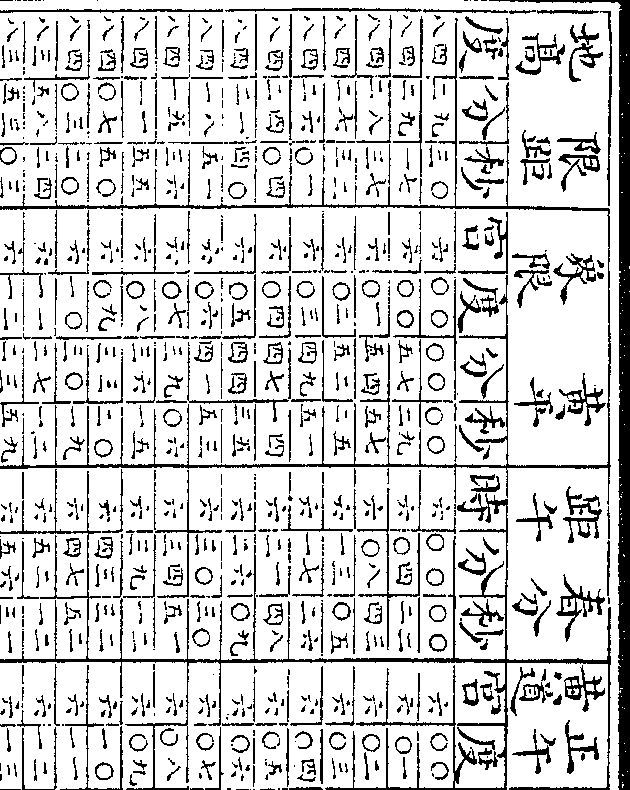 地高限距　黃平象限　距午春分　黃道正午
度　分　秒　宮　度　分　秒　時　分　秒　宮　度
八四　二九　三〇　六　〇〇　〇〇　〇〇　六　〇〇　〇〇　六　〇〇
八四　二九　一七　六　〇〇　五七　二九　六　〇四　二二　六　〇一
八四　二八　三七　六　〇一　五四　五七　六　〇八　四三　六　〇二
八四　二七　三二　六　〇二　五二　二五　六　一三　〇五　六　〇三
八四　二六　〇一　六　〇三　四九　五一　六　一七　二六　六　〇四
八四　二四　〇四　六　〇四　四七　一四　六　二一　四八　六　〇五
八四　二一　四〇　六　〇五　四四　三五　六　二六　〇九　六　〇六
八四　一八　五一　六　〇六　四一　五三　六　三〇　三〇　六　〇七
八四　一五　三六　六　〇七　三九　〇六　六　三四　五一　六　〇八
八四　一一　五五　六　〇八　三六　一五　六　三九　一二　六　〇九
八四　〇七　五〇　六　〇九　三三　二〇　六　四三　三二　六　一〇
八四　〇三　二〇　六　一〇　三〇　一九　六　四七　五二　六　一一
八三　五八　二四　六　一一　二七　一二　六　五二　一二　六　一二
八三　五三　〇三　六　一二　二三　五九　六　五六　三一　六　一三